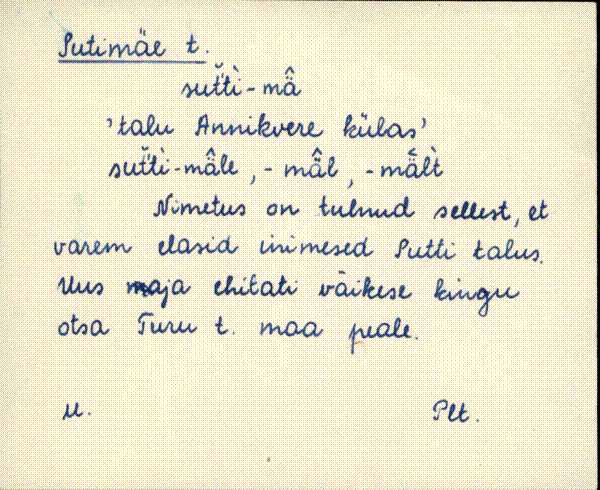 Sutimäe t.
sut̆t̀i-mä̂
'talu Annikvere külas'
sut̆t̀i-mä̂le, -mä̂l, -mä̂lt̀
Nimetus on tulnud sellest, et
varem elasid inimesed Sutti talus.
Uus maja ehitati väikese kingu
otsa Turu t. maa peale.
M. Plt.